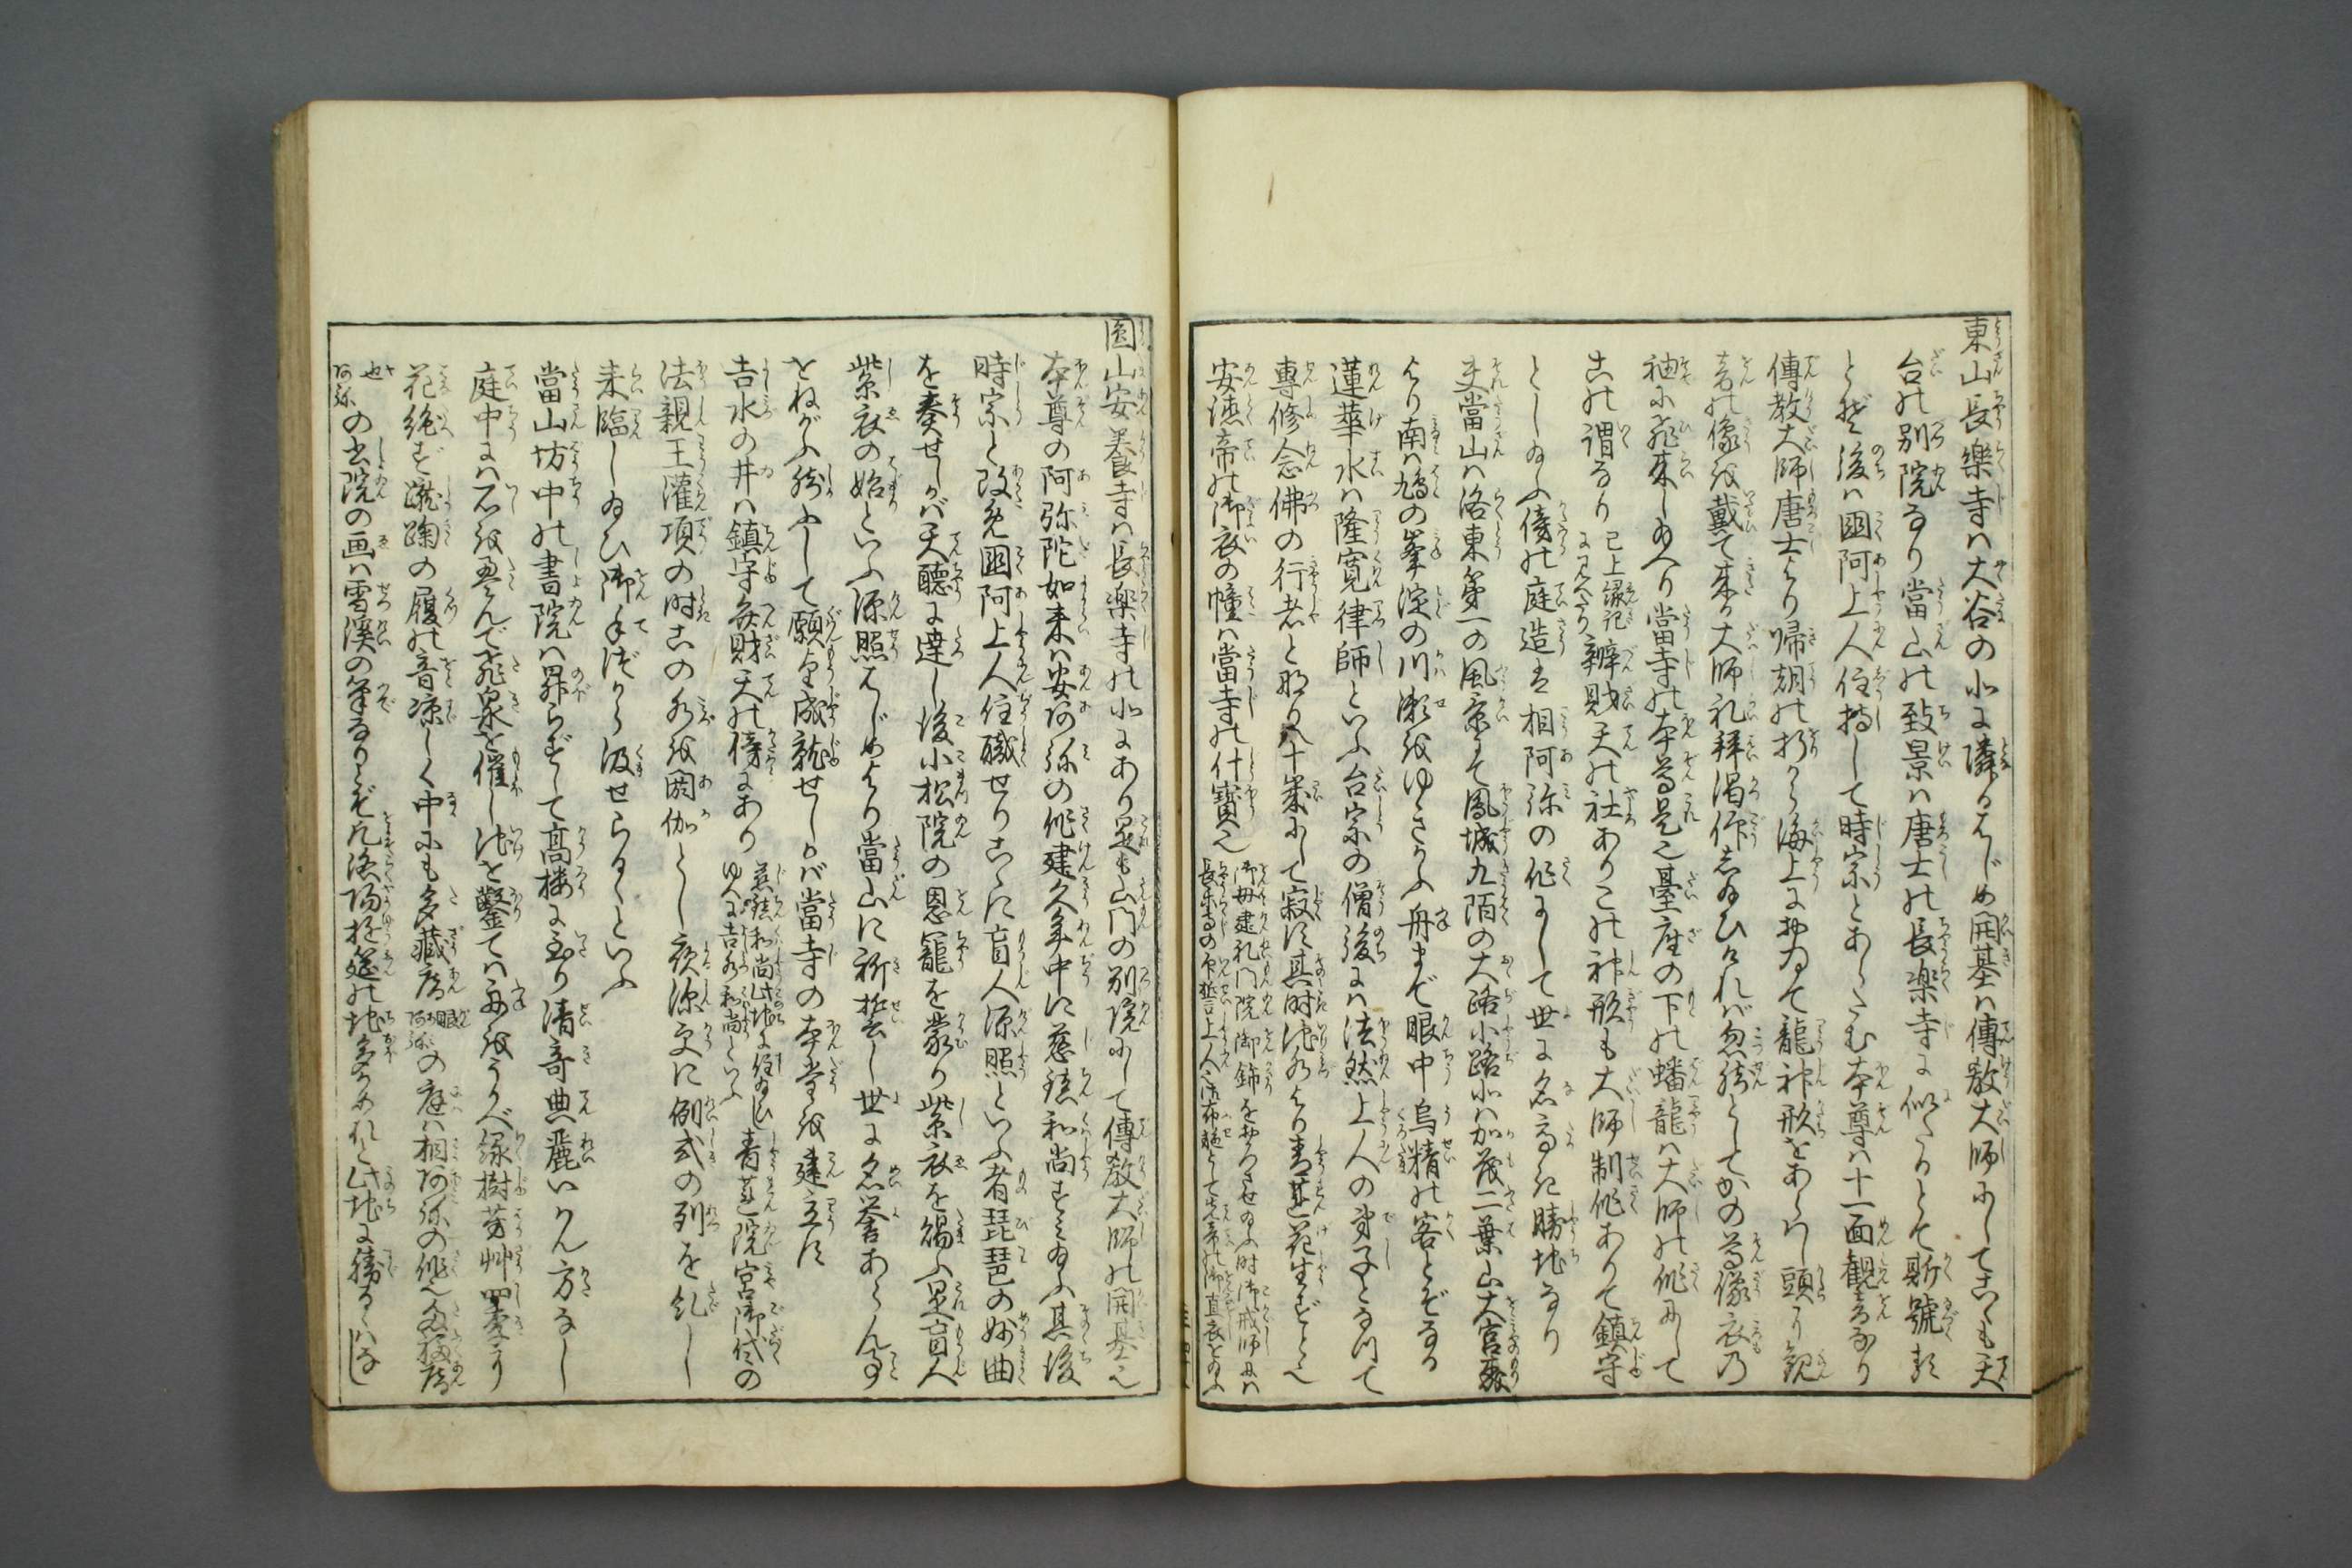 東山長樂寺ハ大谷の北に隣るはじめ開基ハ傳教大師にしてこゝも天
台の別院なり當山の致景ハ唐土の長樂寺に似たりとて斯號す
とぞ後ハ國阿上人住持して時宗とあらたむ本尊ハ十一面觀音なり
傳教大師唐土より帰朝の折から海上に於ゐて龍神形をあらハし頭に観
音の像を戴て来る大師礼拜渇仰し給ひければ忽然としてかの尊像衣の
袖に飛来し給へり當寺の本尊是也臺座の下の蟠龍ハ大師の作にして
この謂なり 已上縁起に見へたり 辨財天の社ありこの神形も大師制作ありて鎮守
とし給ふ傍の庭造は相阿弥の作にして世に名高き勝地なり
夫當山ハ洛東第一の風景にて鳳城九陌の大路小路北ハ加茂二葉山大宮森
より南ハ鳩の峯淀の川瀬をゆきかふ舟まで眼中烏精の客とぞなる
蓮華水ハ隆寛律師といふ台宗の僧後にハ法然上人の弟子となつて
專修念佛の行者と成り八十歳にして寂す其時池水より青蓮花生ずとぞ
安徳帝の御衣の幢ハ當寺の什寶也 御母建礼門院御餝をおろさせ給ふ時御戒師には
長樂寺の印誓上人へ御布施とて先帝の御直衣を給ふ
圓山安養寺ハ長楽寺の北にあり是も山門の別院にして傳教大師の開基也
本尊の阿弥陀如来ハ安阿弥の作建久年中に慈鎮和尚すミ給ふ其後
時宗と改免國阿上人住職せりこゝに盲人源照といふ者琵琶の妙曲
を奏せしが天聽に達し後小松院の恩寵を蒙り紫衣を賜ふ是盲人
紫衣の始といふ源照はじめより當山に祈誓し世に名誉あらん事
をねがふ然ふして願望成就せしかバ當寺の本堂を建立す
吉水の井ハ鎮守弁財天の傍にあり 慈鎮和尚此地に住給ひし
ゆへに吉水和尚といふ 青蓮院宮御代々の
法親王灌頂の時この水を閼伽とし夜深更に例式の列を乱し
来臨し給ひ御手づから汲せらるゝといふ
當山坊中の書院ハ昇らずして高楼に至り清奇典麗いハん方なし
庭中にハ石を畳んで飛泉を催し池を鑿てハ舟をうかべ緑樹芳艸四季に
花絶ず蹴鞠の履の音凉しく中にも多藏庵 眼阿弥 の庭ハ相阿弥の作也多福庵
也阿弥 の書院の画ハ雪溪の筆なりとぞ凡洛陽遊筵の地多けれど此地に勝るゝハなし